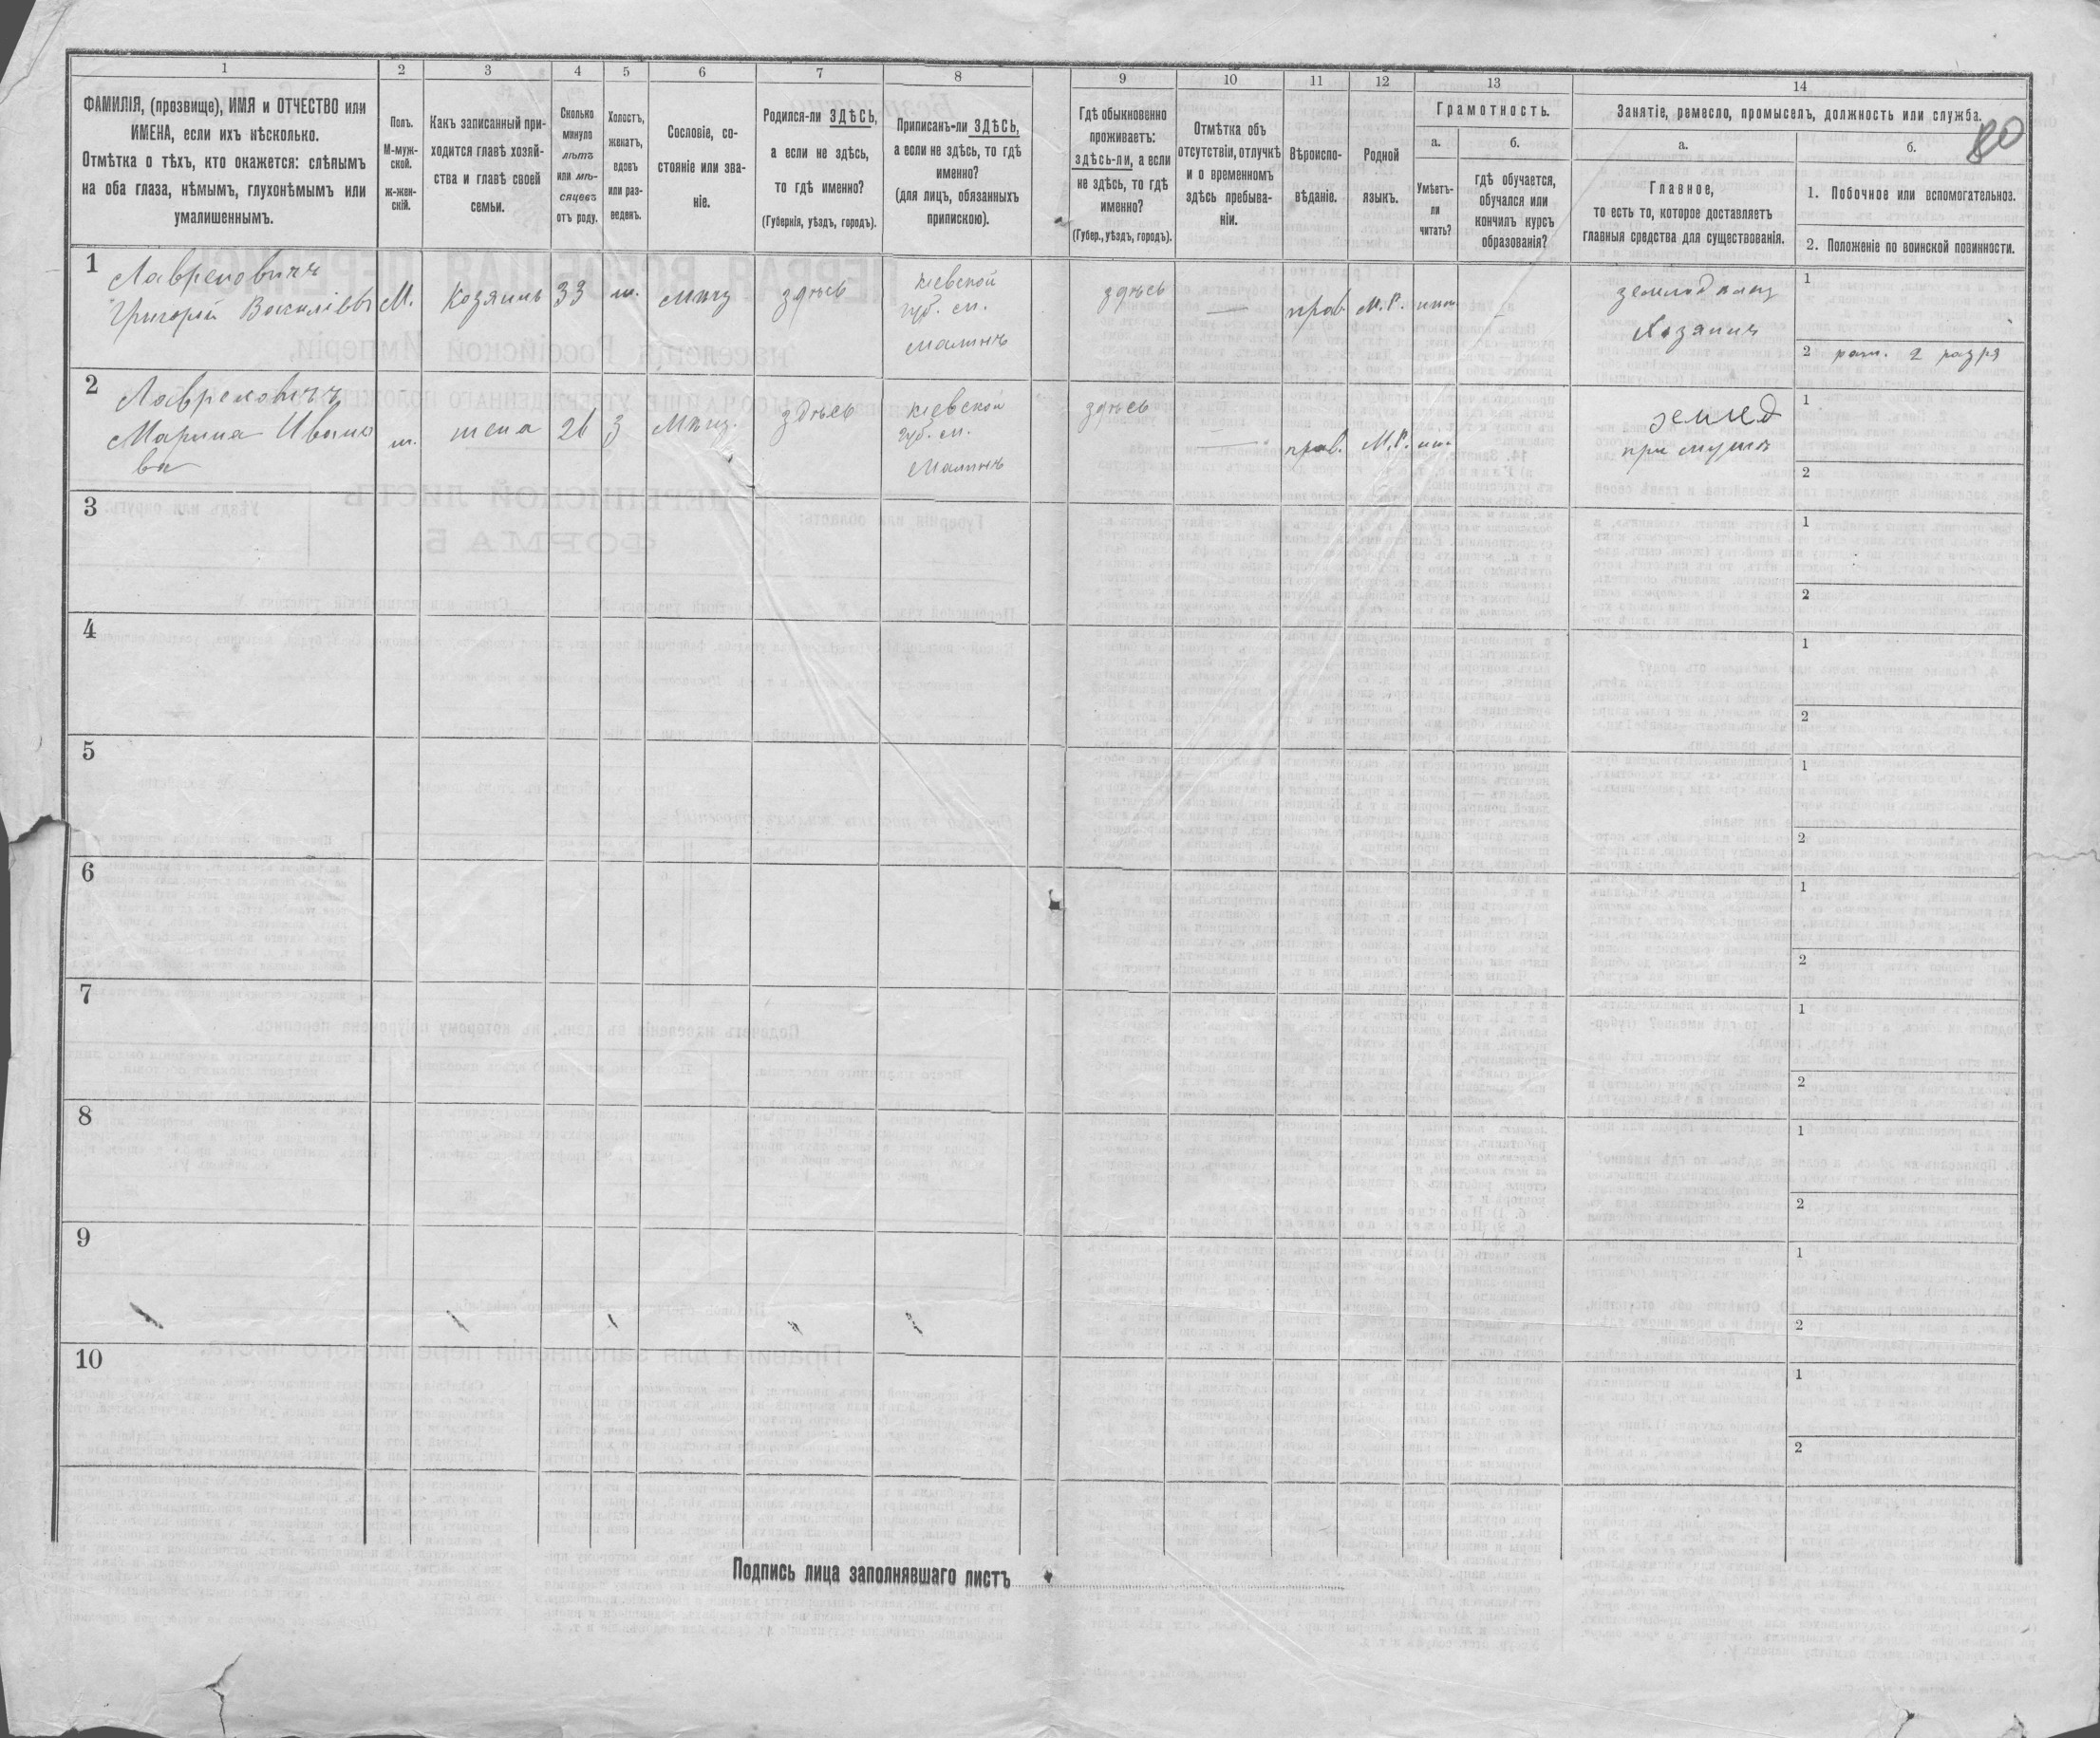 1
2
3
4
5
6
7
8
9
10
11
12
13
14
ФАМИЛІЯ, (прозвище), ИМЯ и ОТЧЕСТВО или
ИМЕНА, если ихъ нѣсколько.
Отмѣтка о тѣхъ, кто окажется: слѣпымъ
на оба глаза, нѣмымъ, глухонѣмымъ или
умалишеннымъ.
Полъ.
М-муж-
ской.
ж-жен-
скій.
Какъ записанный при-
ходится главѣ хозяй-
ства и главѣ своей
семьи.
Сколько
минуло
лѣтъ
или мѣ-
сяцевъ
отъ роду.
Холостъ,
женатъ,
вдовъ
или раз-
веденъ.
Сословіе, со-
стояніе или зва-
ніе.
Родился-ли ЗДѢСЬ,
а если не здѣсь,
то гдѣ именно?
(Губернія, уѣздъ, городъ).
Приписанъ-ли ЗДѢСЬ,
а если не здѣсь, то гдѣ
именно?
(для лицъ, обязанныхъ
припискою).
Гдѣ обыкновенно
проживаетъ:
здѣсь-ли, а если
не здѣсь, то гдѣ
именно?
(Губер., уѣздъ, городъ).
Отмѣтка объ
отсутствіи, отлучкѣ
и о временномъ
здѣсь пребыва-
ніи.
Вѣроиспо-
вѣданіе.
Родной
языкъ.
Грамотность.
а.
Умѣетъ-
ли
читать?
б.
гдѣ обучается,
обучался или
кончилъ курсъ
образованія?
Занятіе, ремесло, промыселъ, должность или служба.
80
а.
Главное,
то есть то, которое доставляетъ
главныя средства для существованія.
б.
1. Побочное или вспомогательное.
2. Положеніе по воинской повинности.
1
Лавреновичъ
Григорій Василіевъ
М.
Хозяинъ
33
ж.
мѣщ
здѣсь
Кіевской
губ. м.
Малинъ
здѣсь
—
прав.
М.Р.
—
Хозяинъ
1
2 ратн. 2 разря
2
Лавреновичъ
Марина Ивано
ва
ж.
жена
26
З
Мѣщ.
здѣсь
Кіевской
губ. м.
Малинъ
здѣсь
—
прав.
М.Р.
землед
при мужѣ
1
2
3
1
2
4
1
2
5
1
2
6
1
2
7
1
2
8
1
2
9
1
2
10
1
2
Подпись лица заполнявшаго листъ